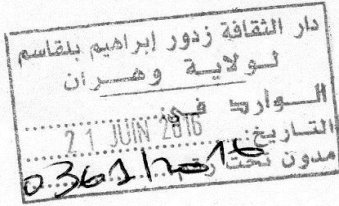 دار الثقافة زدور إبراهيم بلقاسم
لولاية وهران
الوارد في:
21 JUIN 2016
التاريخ:
مدون تحت رقم
0361/2016